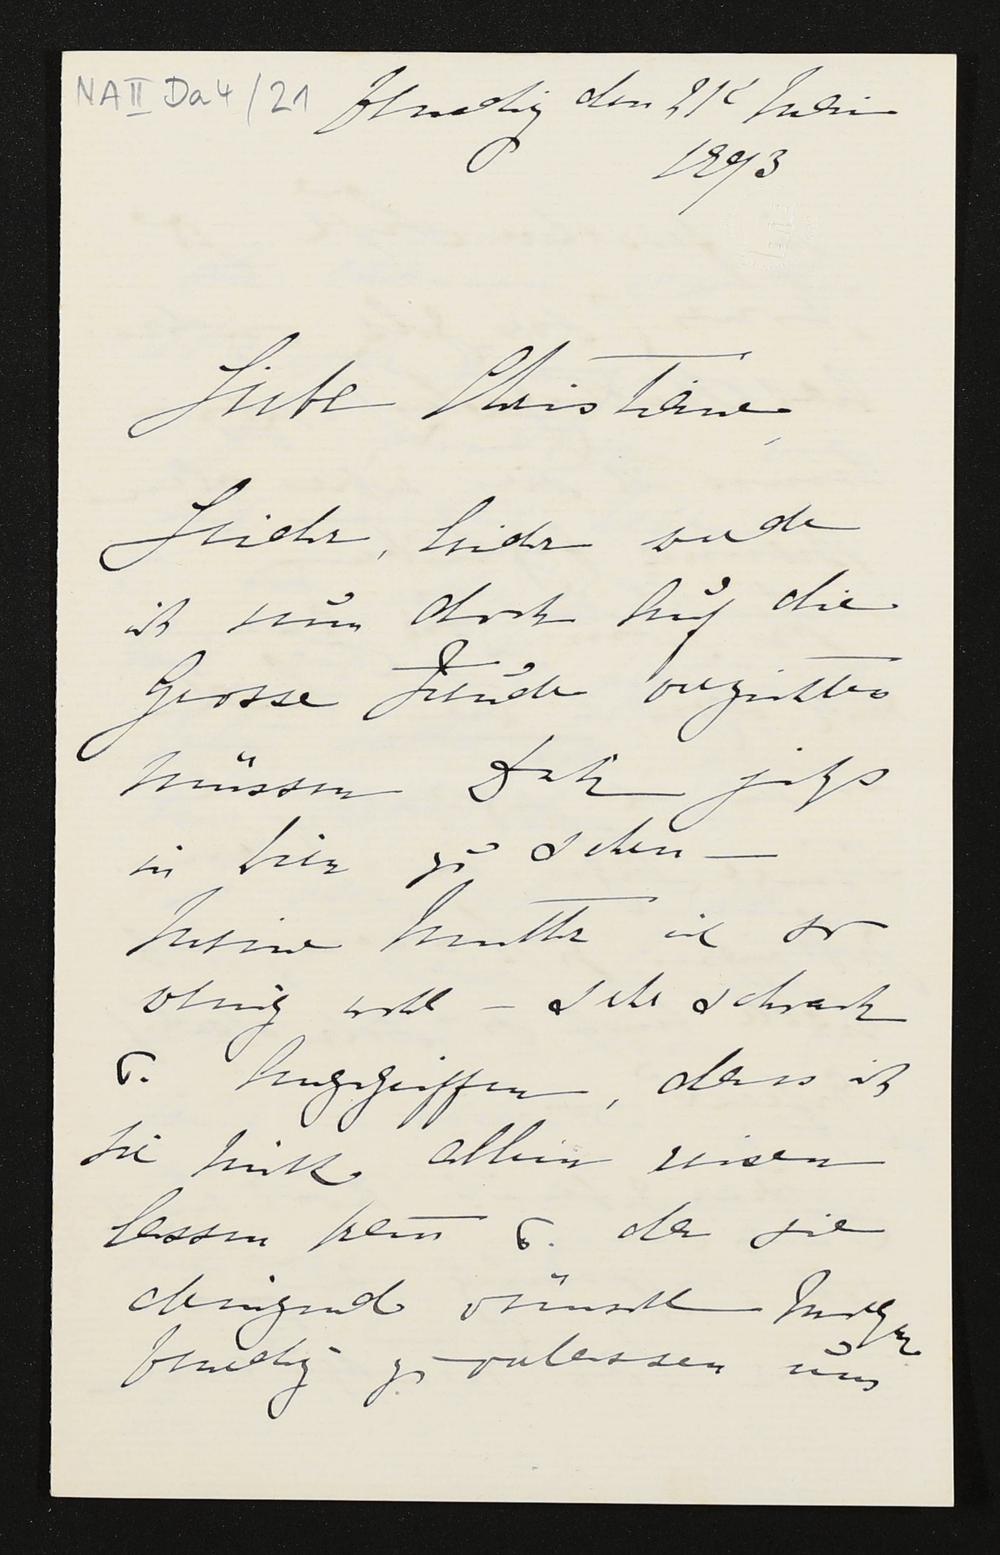 NA II Da 4/21
Venedig den 21t Juni
1893
Liebe Christiane,
Leider, leider werde
ich nun doch auf die
Grosse Freude verzichten
müssen Dich jetzt
in Wien zu sehen —
Meine Mutter ist so
wenig wohl – sehr schwach
u. angegriffen, dass ich
sie nicht allein reisen
lassen kann u. da sie
dringend wünscht Morgen
Venedig zu verlassen um